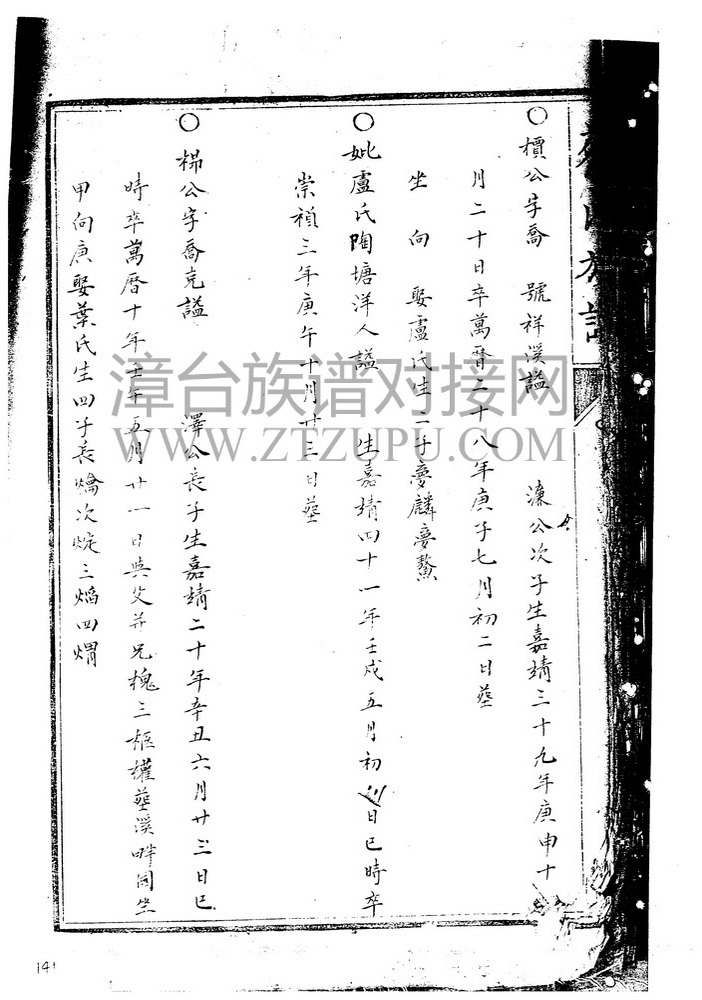 ○ 檟公字喬 號祥溪謚 濂公次子生嘉靖三十九年庚申十
月二十日卒萬曆二十八年庚子七月初二日塟
坐 向 娶盧氏生一子夢麟夢鰲
○ 妣盧氏陶塘洋人謚 生嘉靖四十一年壬戌五月初 日巳時卒
崇禎三年庚午十月廿三日塟
○ 梯公字喬克謚 澤公長子生嘉靖二十年辛丑六月廿三日巳
時卒萬曆十年壬午五月廿一日與父并兄槐三柩權塟溪畔同坐
甲向庚娶葉氏生四子長爚次烶三熖四熠
族譜
漳台族谱对接网
WWW.ZTZUPU.COM
141